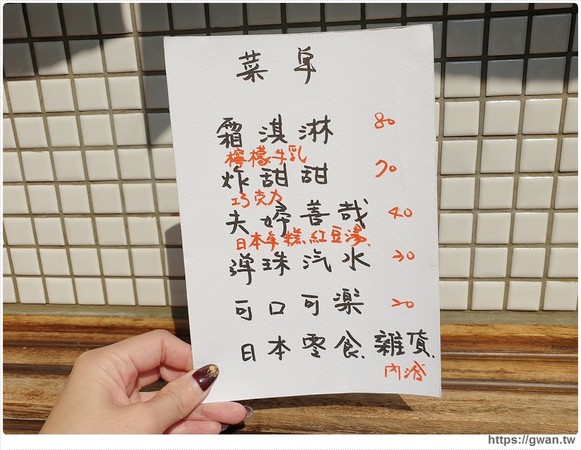 菜单
霜淇淋 80
檸檬牛乳
炸甜甜 70
巧克力
夫婦善哉 40
日本羊糕、紅豆湯、
弹珠汽水 30
可口可楽 20
日本零食、雜貨
內洽
https://gwan.tw